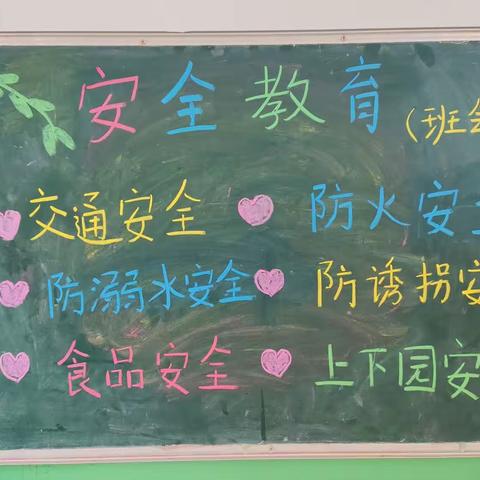 安全教育（班会
交通安全 防火安全
防溺水安全 防诱拐安
食品安全 上下园安